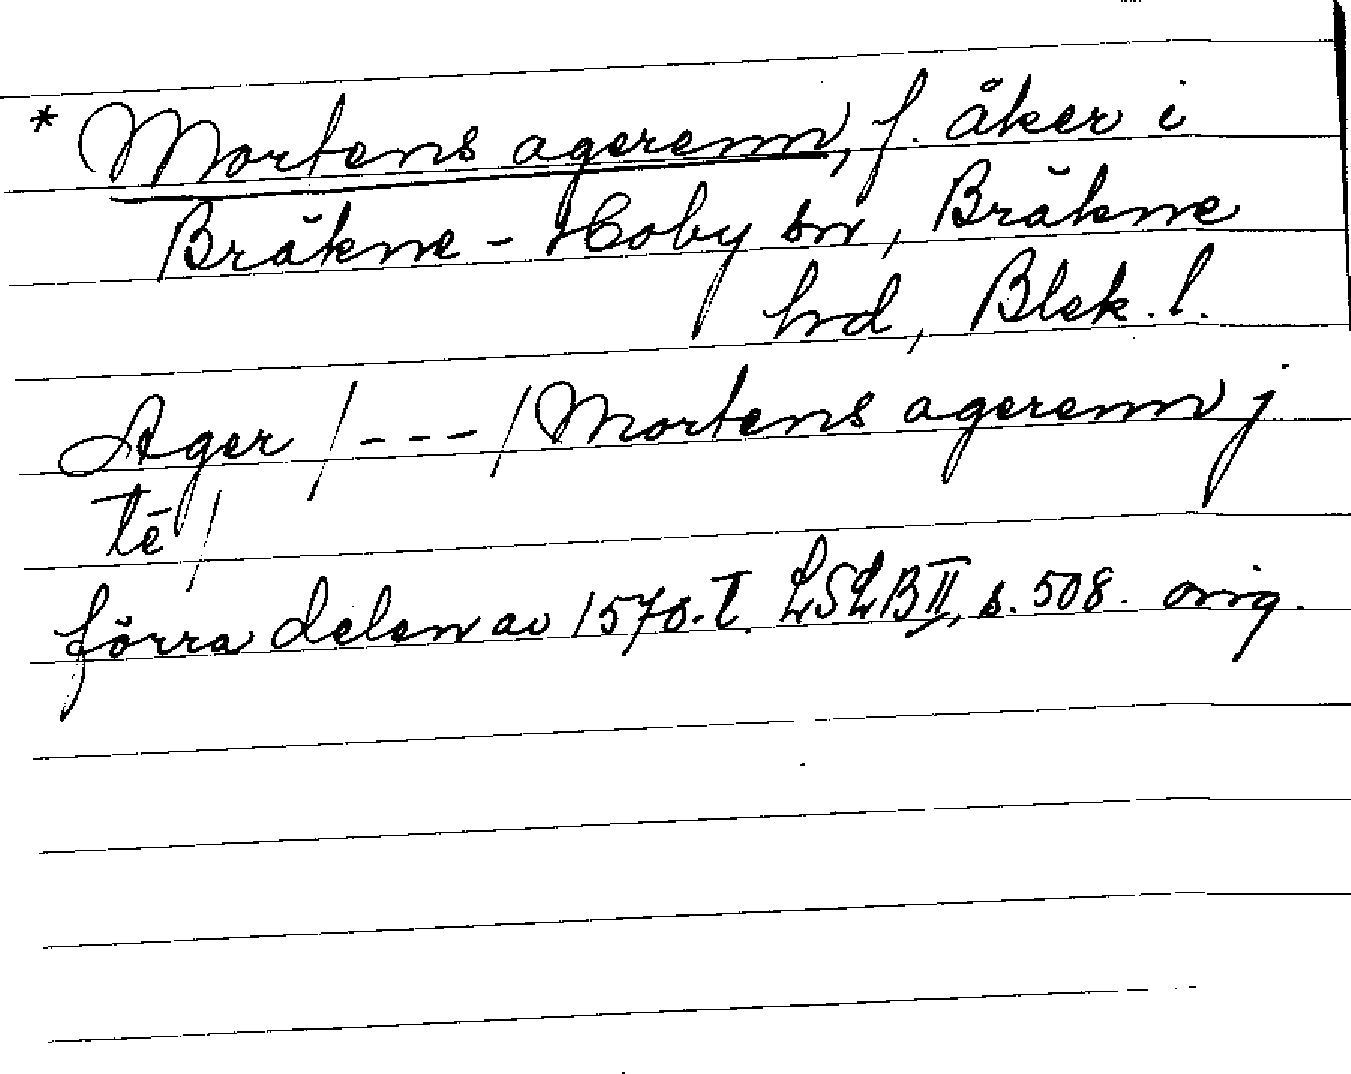 * Mortens agerenn, f. åker i
Bräkne-Hoby sn, Bräkne
hrd, Blek. l.
Ager /---/ Mortens agerenn j
tē /
förra delen av 1570-t. LSLB II, s. 508. orig.